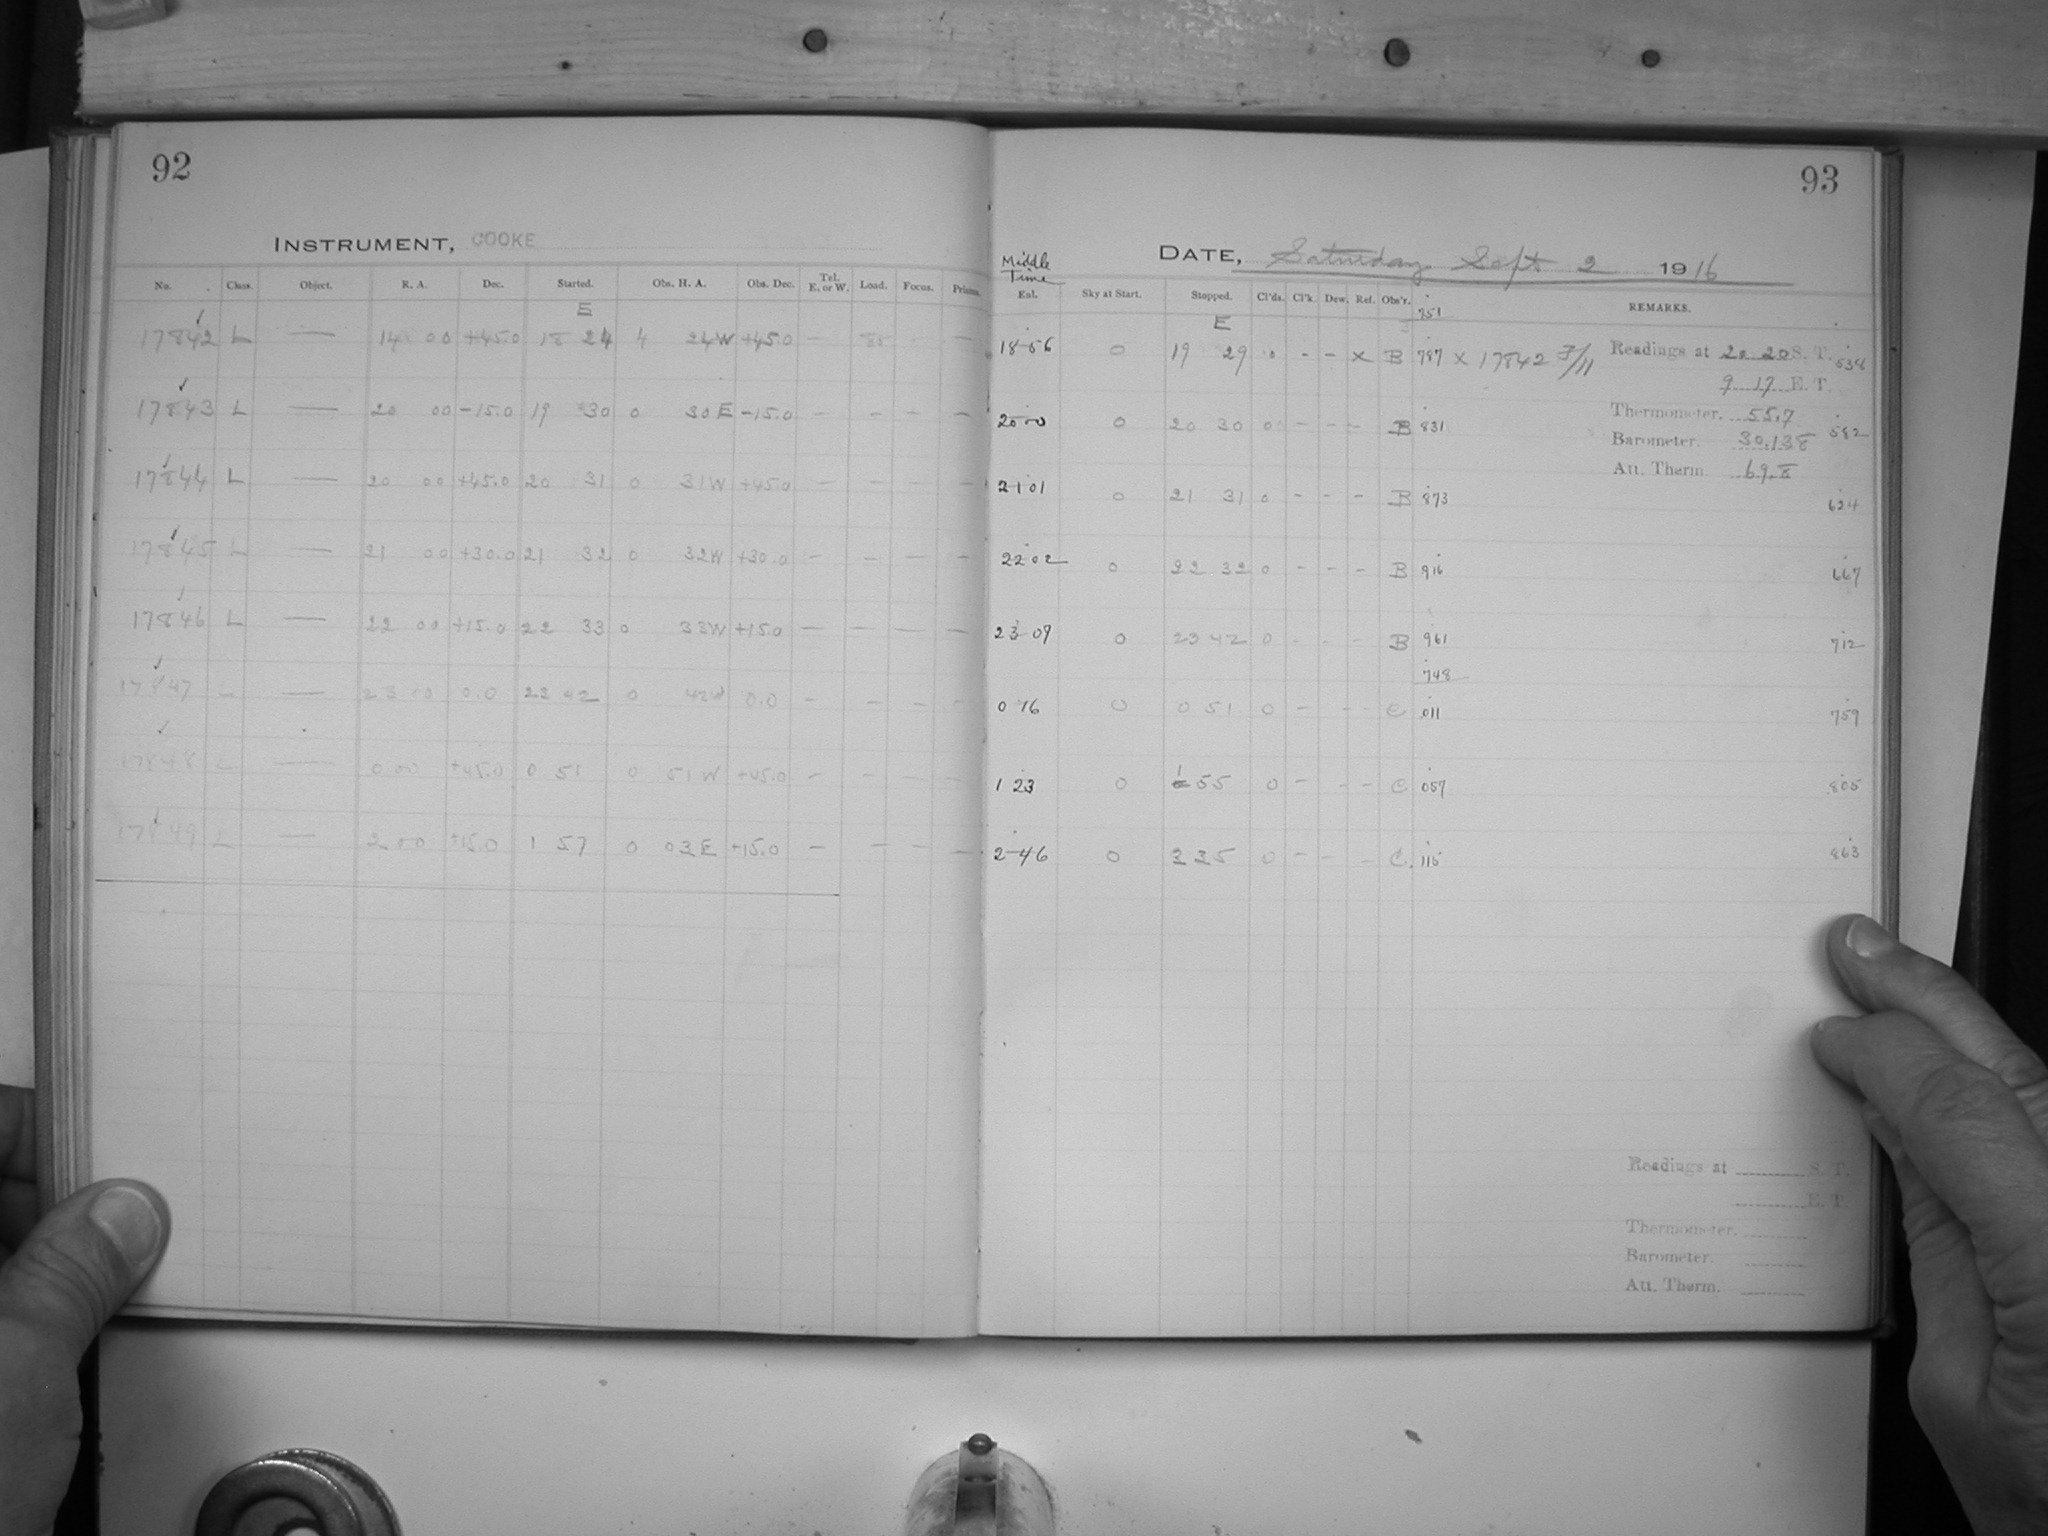 92
INSTRUMENT, COOKE
No. Class. Object. R. A. Dec. Started. Obs. H. A. Obs. Dec. Tel. E. or W. Load. Focus. Prisms.
E
17842 L — 14 00 +45.0 18 24 4 24W +45.0 — —
17843 L — 20 00 -15.0 19 30 0 30E -15.0 — — — —
17844 L — 20 00 +45.0 20 31 0 31W +45.0 — — — —
17845 L — 21 00 +30.0 21 32 0 32W +30.0 — — — —
17846 L — 22 00 +15.0 22 33 0 33W +15.0 — — — —
17847 L — 23 00 0.0 22 42 0 42W 0.0 — — — —
17848 L — 0 00 +45.0 0 51 0 51W +45.0 — — — —
17849 L — 2 00 +15.0 1 57 0 03E +15.0 — — — —
93
DATE, Saturday Sept 2 1916
Middle Time
Enl. Sky at Start. Stopped. Cl'ds. Cl'k. Dew. Ref. Obs'r. REMARKS.
751
E
18 56 0 19 29 0 - - x B 787 x 17842 F/11 538
20 00 0 20 30 0 - - - B 831 582
21 01 0 21 31 0 - - - B 873 624
22 02 0 22 32 0 - - - B 916 667
23 09 0 23 42 0 - - - B 961 712
748
0 16 0 0 51 0 - - - C 011 759
1 23 0 1 55 0 - - - C. 057 805
2 46 0 3 35 0 - - - C. 115 863
Readings at 20 20 S. T.
9 17 E. T.
Thermometer. 55.7
Barometer. 30.138
Att. Therm. 69.8
Readings at S. T.
E. T.
Thermometer.
Barometer.
Att. Therm.